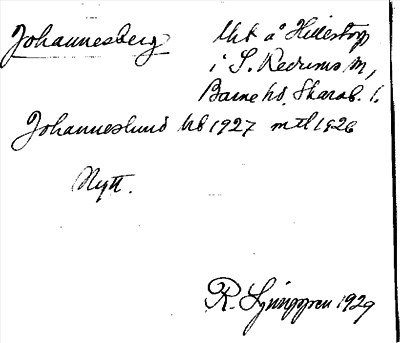 Johannesberg
Utk å Hillestorp
i S. Kedrums sn,
Barne hd, Skarab. l.
Johanneslund kb 1927 mtl 1926
Nytt.
R. Ljunggren 1929